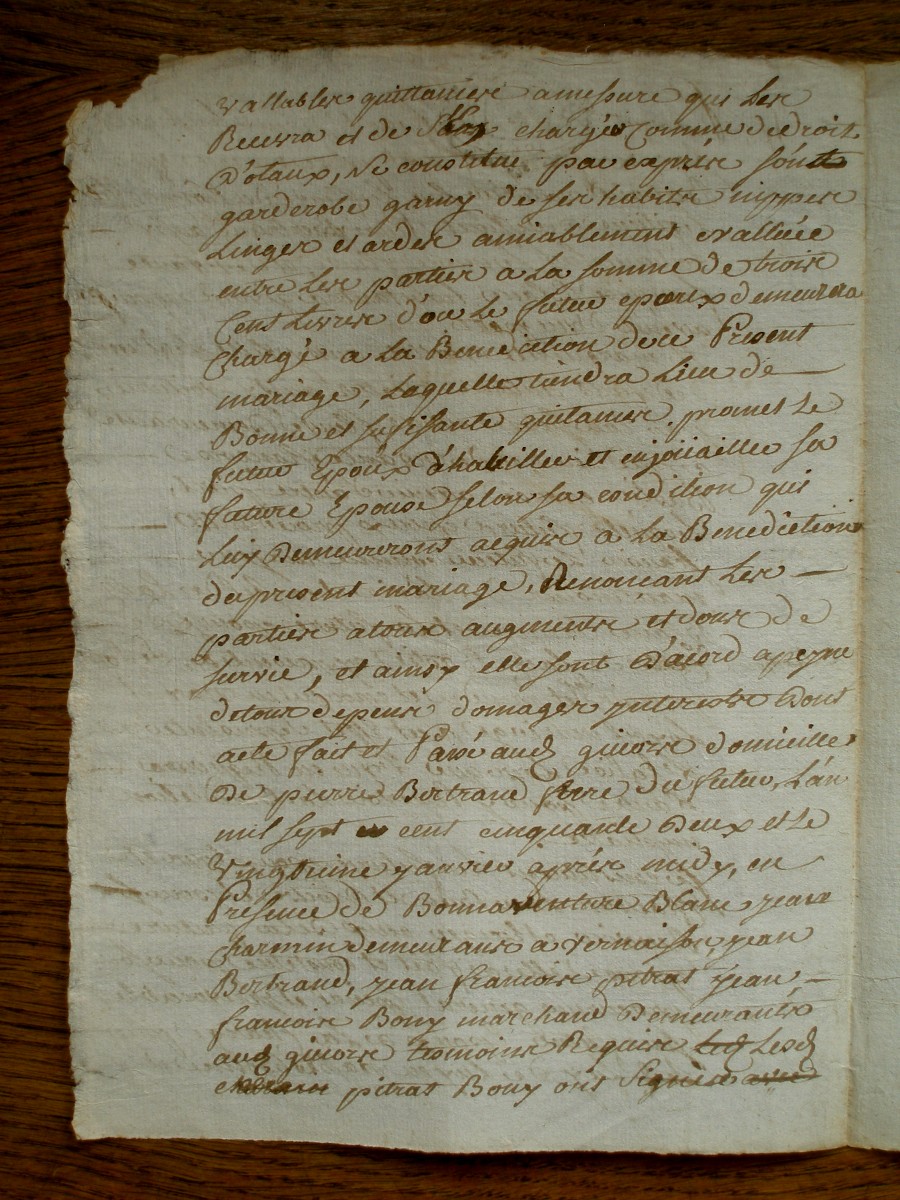 vallables quittances amesure qui les
Recevra et de chargés Comme de droit
D'otaux, Se constitue par exprés
garderobe garny de ses habits nippes
Linges et ardes amiablement evalliée
entre les parties a La somme de trois
Cent Livres d'ou Le futur epoux demeurera
Chargé a La Benediction de ce Present
mariage, Laquelle tiendra Lieu de
Bonne et sufisante quitances, promet Le
futur Epoux d'habiller et enjouailler sa
future Epouse selon sa condition qui
Luy Demeureront aquis a La Benediction
du present mariage, Renonceant Les
parties atous augments et dons de
survie, et ainsy elle sont D'acord apeyne
detous depens domages ynterests Dont
acte fait et Passé aud givors domicille
De pierre Bertrand frere du futur, L'an
mil sept cent cinquante Deux et Le
vingt yanvier aprés midy, en
Presence de Bonnaventure Blanc, yean
Charmin demeurans a vernaison, yean
Bertrand, yean francois pitrat yean
francois Bony marchand Demeurants
aud givors temoins Requis Lesd
pitrat Bony ont Signés